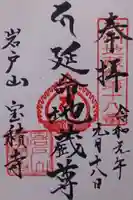 奉拝
令和元年
九月十八日
延命地蔵尊
岩戸山
宝積寺